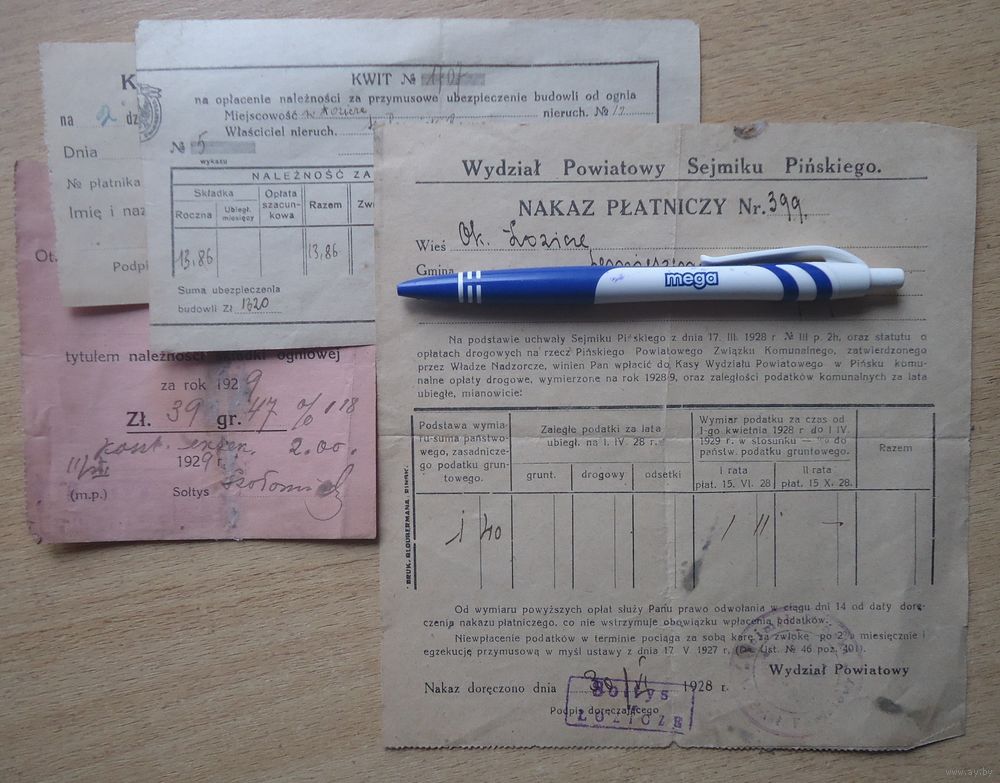 K
na 2 dz
Dnia
№ płatnika
Imię i naz
Podpi
KWIT №
na opłacenie należności za przymusowe ubezpieczenie budowli od ognia
Miejscowość nieruch. №
Właściciel nieruch.
№ 5
wykazu
NALEŻNOŚĆ ZA
Składka Opłata szacun-kowa Razem Zwi
Roczna Ubiegł. miesięcy
13,86 13,86
Suma ubezpieczenia
budowli Zł 1320
Ot.
tytułem należności składki ogniowej
za rok 1929
Zł. 39 gr. 47
2.00.
1929 r.
(m.p.) Sołtys
Wydział Powiatowy Sejmiku Pińskiego.
NAKAZ PŁATNICZY Nr. 399
Wieś
Gmina
mega
Na podstawie uchwały Sejmiku Pińskiego z dnia 17. III. 1928 № III p. 2h, oraz statutu o
opłatach drogowych na rzecz Pińskiego Powiatowego Związku Komunalnego, zatwierdzonego
przez Władze Nadzorcze, winien Pan wpłacić do Kasy Wydziału Powiatowego w Pińsku komu-
nalne opłaty drogowe, wymierzone na rok 1928/9, oraz zaległości podatków komunalnych za lata
ubiegłe, mianowicie:
Podstawa wymia-
ru-suma państwo-
wego, zasadnicze-
go podatku grun-
towego.
Zaległe podatki za lata
ubiegł. na 1. IV. 28 r.
grunt. drogowy odsetki
Wymiar podatku za czas od
1-go kwietnia 1928 r do 1 IV.
1929 r. w stosunku — % do
państw. podatku gruntowego.
I rata II rata
płat. 15. VI. 28 płat. 15 X. 28.
Razem
1 40 1 11 —
DRUK. GLOUBERMANA, PINSK.
Od wymiaru powyższych opłat służy Panu prawo odwołania w ciągu dni 14 od daty dorę-
czenia nakazu płatniczego, co nie wstrzymuje obowiązku wpłacenia podatków.
Niewpłacenie podatków w terminie pociąga za sobą karę za zwłokę po 2% miesięcznie i
egzekucję przymusową w myśl ustawy z dnia 17 V 1927 r. (Dz. Ust. № 46 poz. 401).
Wydział Powiatowy
Nakaz doręczono dnia 30/VI 1928 r.
Podpis doręczającego
Sołtys
ŁOZICZE
www.ay.by